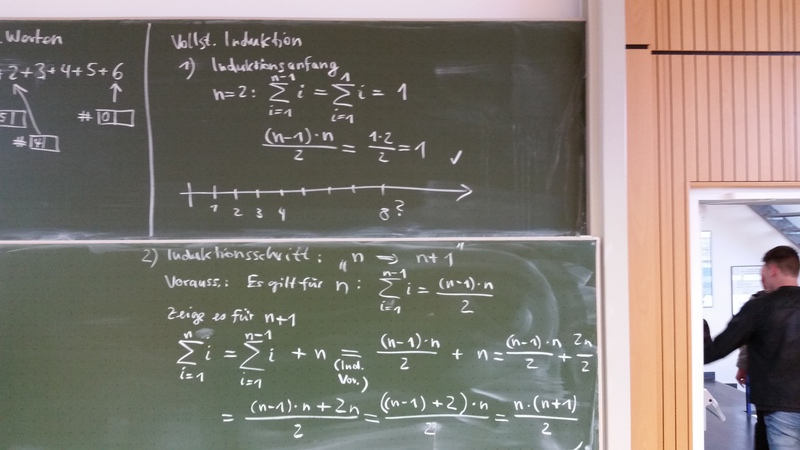 . Worten
+2+3+4+5+6
5
# 0
# 4
Vollst. Induktion
1) Induktionsanfang
n=2: ∑_{i=1}^{n-1} i = ∑_{i=1}^{1} i = 1
(n-1)·n / 2 = 1·2 / 2 = 1 ✓
1 2 3 4 8?
2) Induktionsschritt: „n ⇒ n+1"
Vorauss.: Es gilt für n: ∑_{i=1}^{n-1} i = (n-1)·n / 2
Zeige es für n+1
∑_{i=1}^{n} i = ∑_{i=1}^{n-1} i + n = (Ind. Vor.) (n-1)·n / 2 + n = (n-1)·n / 2 + 2n / 2
= (n-1)·n + 2n / 2 = ((n-1)+2)·n / 2 = n·(n+1) / 2